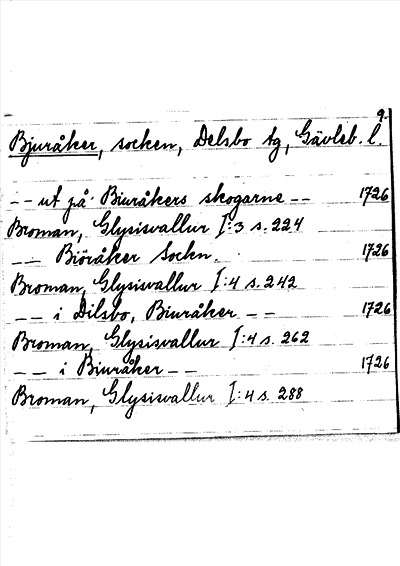 9.
Bjuråker, socken, Delsbo tg, Gävleb. l.
-- ut på Biuråkers skogarne -- 1726
Broman, Glysisvallur I:3 s. 224
-- Biöråker Sockn. 1726
Broman, Glysisvallur I:4 s. 242
-- i Dilsbo, Biuråker -- 1726
Broman, Glysisvallur I:4 s. 262
-- i Biuråker -- 1726
Broman, Glysisvallur I:4 s. 288